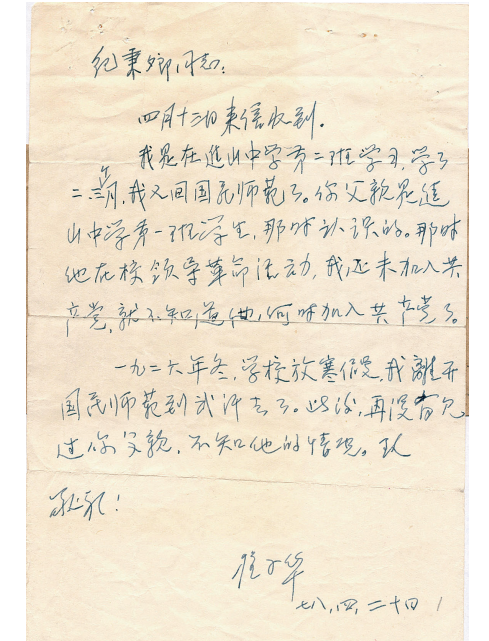 纪秉卿同志:
四月十三日来信收到。
我是在进山中学第二班学习,学了
二、三个月,我又回国民师范了。你父亲是进
山中学第一班学生,那时认识的。那时
他在校领导革命活动,我还未加入共
产党,就不知道他何时加入共产党了。
一九二六年冬,学校放寒假,我離开
国民师范到武汉去了。此后,再没有见
过你父亲,不知他的情况。致
敬礼!
程子华
七八,四,二十四